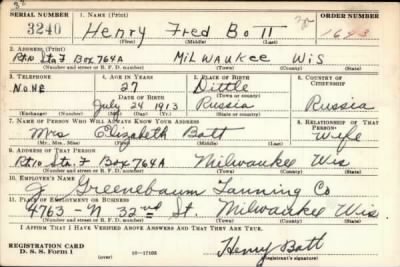 SERIAL NUMBER 1. NAME (Print) ORDER NUMBER
3240 Henry Fred Bott 1643
(First) (Middle) (Last)
2. ADDRESS (Print)
Rt 10 Sta. F Box 764A Milwaukee Wis
(Number and street or R. F. D. number) (Town) (County) (State)
3. TELEPHONE 4. AGE IN YEARS 5. PLACE OF BIRTH 6. COUNTRY OF CITIZENSHIP
None 27 Dittle
DATE OF BIRTH (Town or county)
July 24 1913 Russia Russia
(Exchange) (Number) (Mo.) (Day) (Yr.) (State or country)
7. NAME OF PERSON WHO WILL ALWAYS KNOW YOUR ADDRESS 8. RELATIONSHIP OF THAT PERSON
Mrs Elizabeth Bott Wife
(Mr., Mrs., Miss) (First) (Middle) (Last)
9. ADDRESS OF THAT PERSON
Rt 10 Sta. F Box 764A Milwaukee Wis
(Number and street or R. F. D. number) (Town) (County) (State)
10. EMPLOYER'S NAME
J Greenebaum Tanning Co
11. PLACE OF EMPLOYMENT OR BUSINESS
4763-N 32nd St. Milwaukee Wis.
(Number and street or R. F. D. number) (Town) (County) (State)
I AFFIRM THAT I HAVE VERIFIED ABOVE ANSWERS AND THAT THEY ARE TRUE.
REGISTRATION CARD
D. S. S. Form 1 (over) 16-17105 Henry Bott
(Registrant's signature)